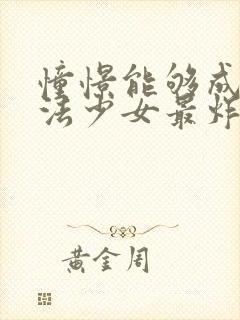 憧憬能够成
法少女最炸
黄金周